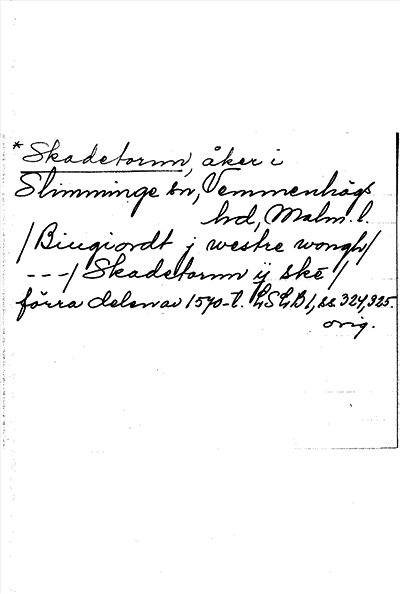 *Skadetornn, åker i
Slimminge sn, Vemmenhögs
hd, Malm. l.
/Biugiordt j westre wongh/
---/Skadetornn ij ske/
förra delen av 1570-t. LSLB1, ss. 324, 325.
orig.